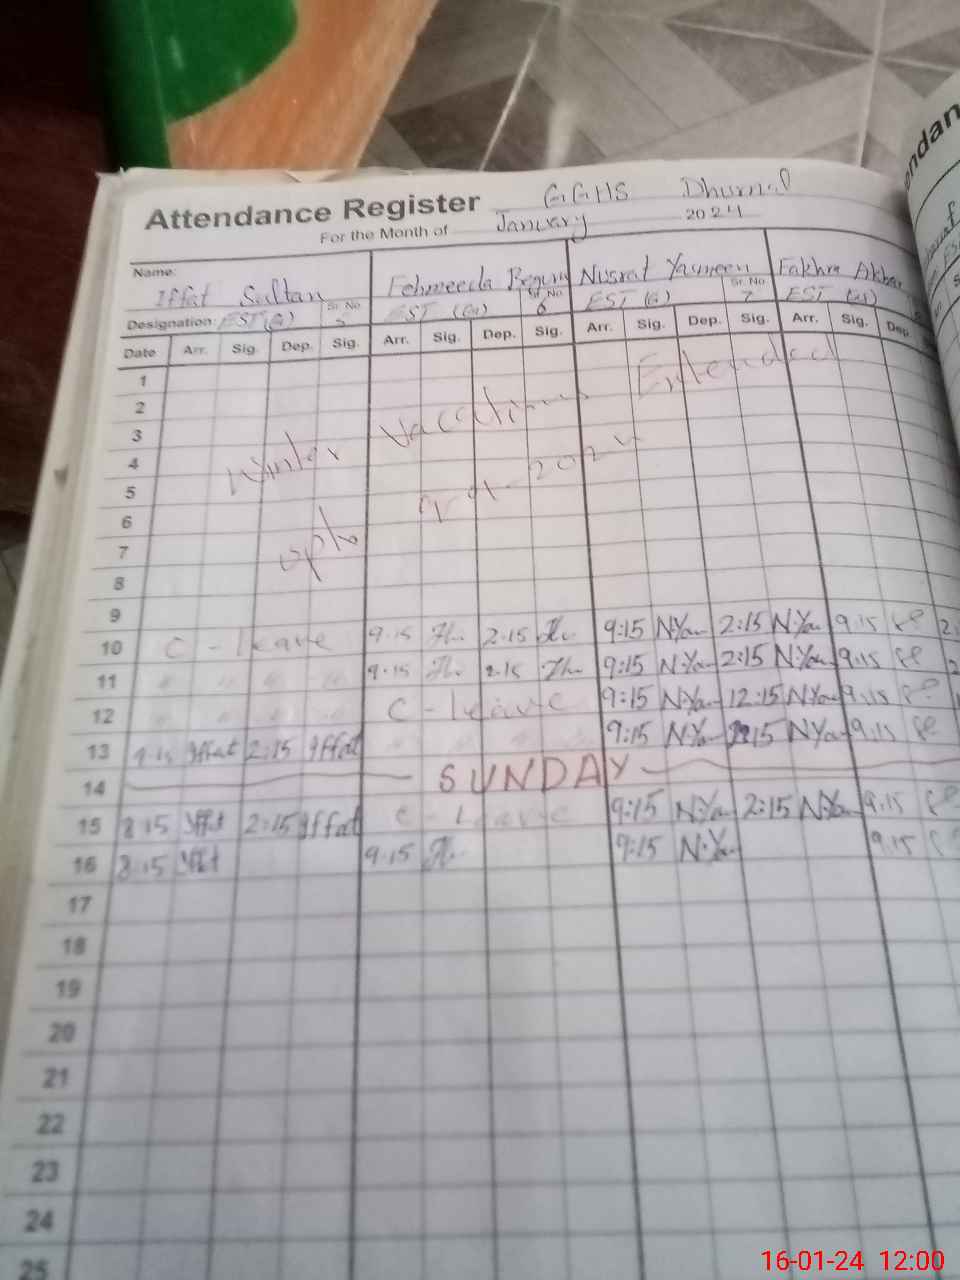 Attendance Register GGHS Dhurnal
For the Month of January 2024
Name: Iffat Sultan Fehmeeda Begum Nusrat Yasmeen Fakhra Akbar
Designation: EST (G) Sr. No 5 EST (G) Sr. No 6 EST (G) Sr. No 7 EST
Date Arr. Sig. Dep. Sig. Arr. Sig. Dep. Sig. Arr. Sig. Dep. Sig. Arr. Sig. Dep.
1
2 Winter Vacations Extended
3
4
5
6 upto 9-1-2024
7
8
9
10 C-leave 9.15 2.15 9:15 N.Ya 2:15 N.Ya 9.15
11 " " " " 9.15 2.15 9:15 N.Ya 2:15 N.Ya 9.15
12 " " " " C-leave 9:15 N.Ya 12:15 N.Ya 9.15
13 9.15 Iffat 2:15 Iffat " " " 9:15 N.Ya 15 N.Ya 9.15
14 SUNDAY
15 8.15 Iffat 2:15 Iffat C-leave 9:15 N.Ya 2:15 N.Ya 9.15
16 8.15 Iffat 9.15 9:15 N.Ya 9.15
17
18
19
20
21
22
23
24
25
16-01-24 12:00